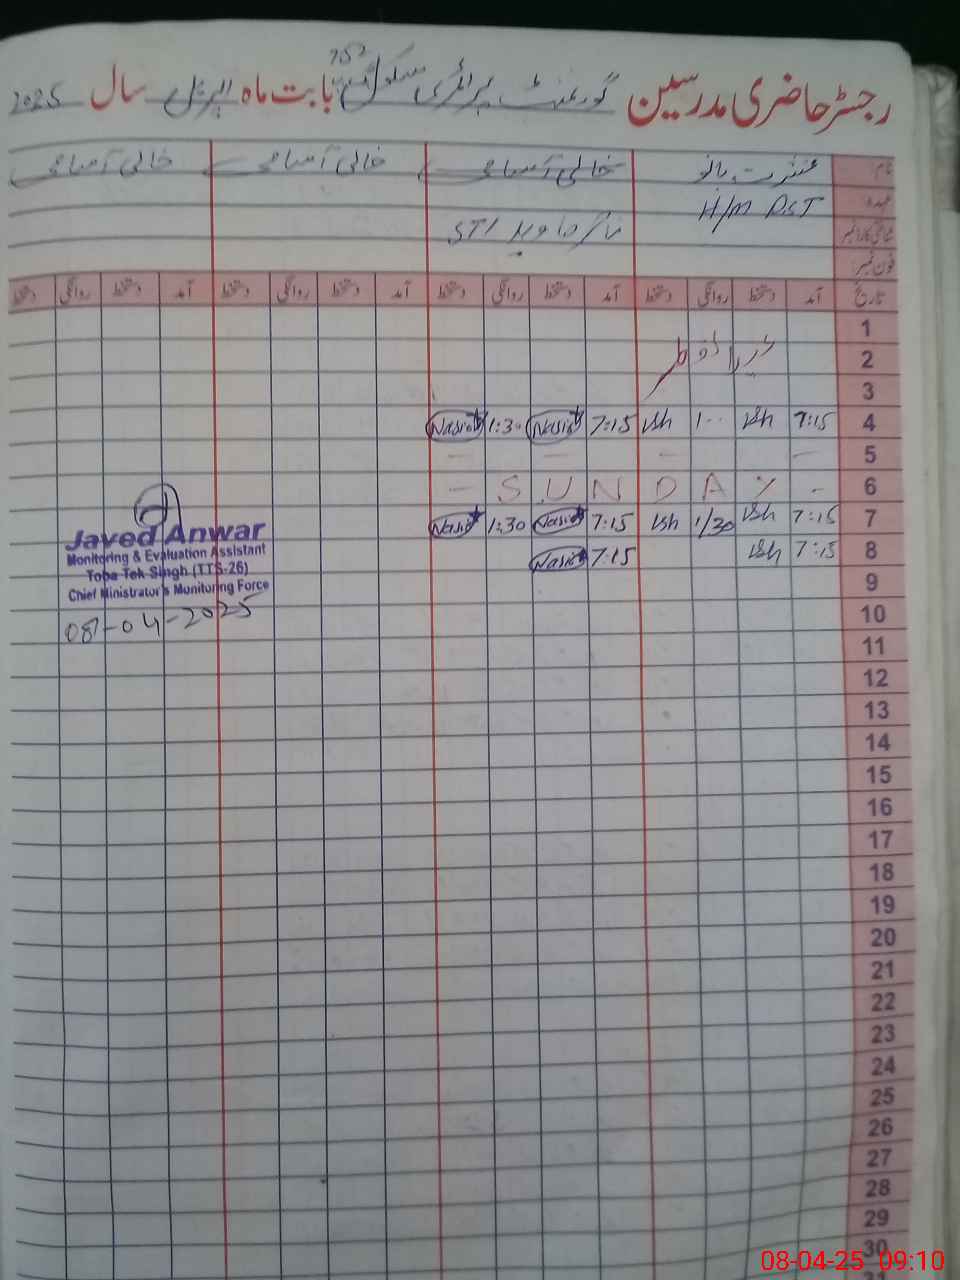 رجسٹر حاضری مدرسین گورنمنٹ پرائمری سکول 752 بابت ماہ اپریل سال 2025
نام عشرت بانو خالی آسامی خالی آسامی خالی آسامی
عہدہ H/M PST
شناختی کارڈ نمبر STI
فون نمبر
تاریخ آمد دستخط روانگی دستخط آمد دستخط روانگی دستخط آمد دستخط روانگی دستخط آمد دستخط روانگی دستخط
1
2 عید الفطر
3
4 7:15 Ish 1-- Ish 7:15 Nasir 1:30 Nasir
5 — — — —
6 - S U N D A Y -
7 7:15 Ish 1/30 Ish 7:15 Nasir 1:30 Nasir
8 7:15 Ish 7:15 Nasir
9
10
11
12
13
14
15
16
17
18
19
20
21
22
23
24
25
26
27
28
29
30
31
Javed Anwar
Monitoring & Evaluation Assistant
Toba Tek Singh (TTS-26)
Chief Ministrator's Monitoring Force
08-04-2025
08-04-25 09:10